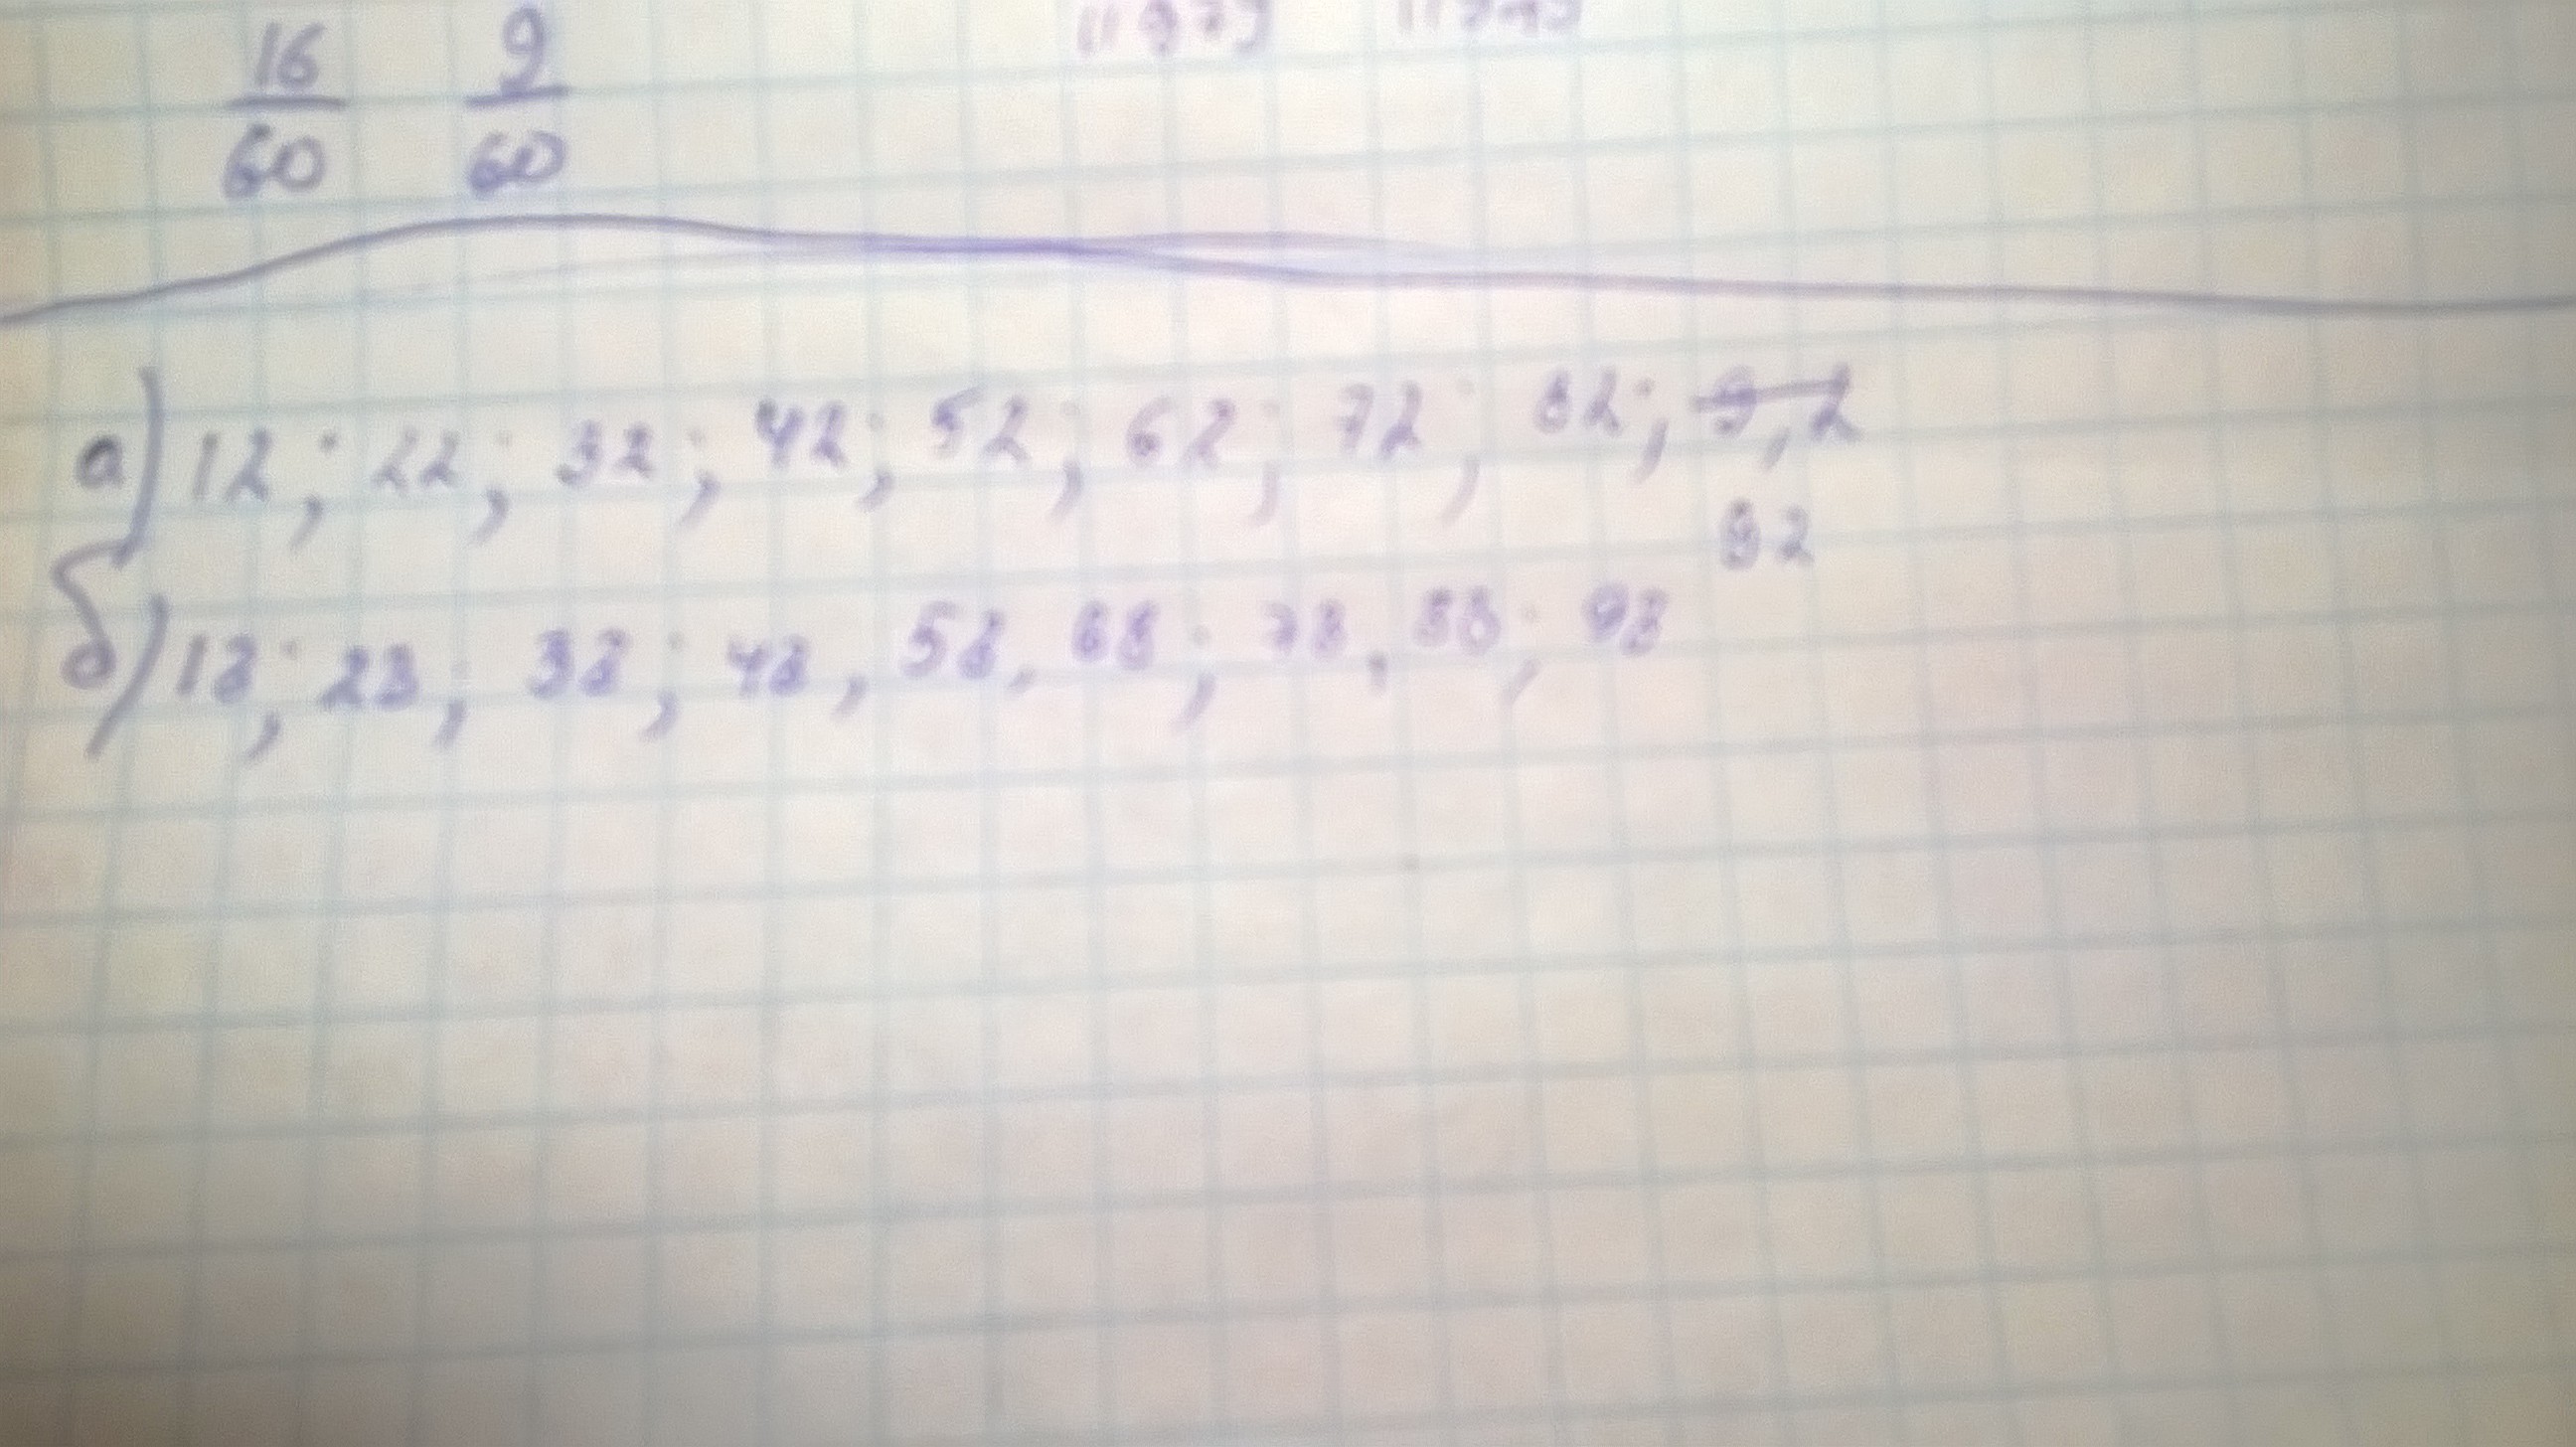 16 9
60 60
а) 12; 22; 32; 42; 52; 62; 72; 82; 9,2
92
б) 18; 28; 38; 48, 58, 68; 78, 88; 98